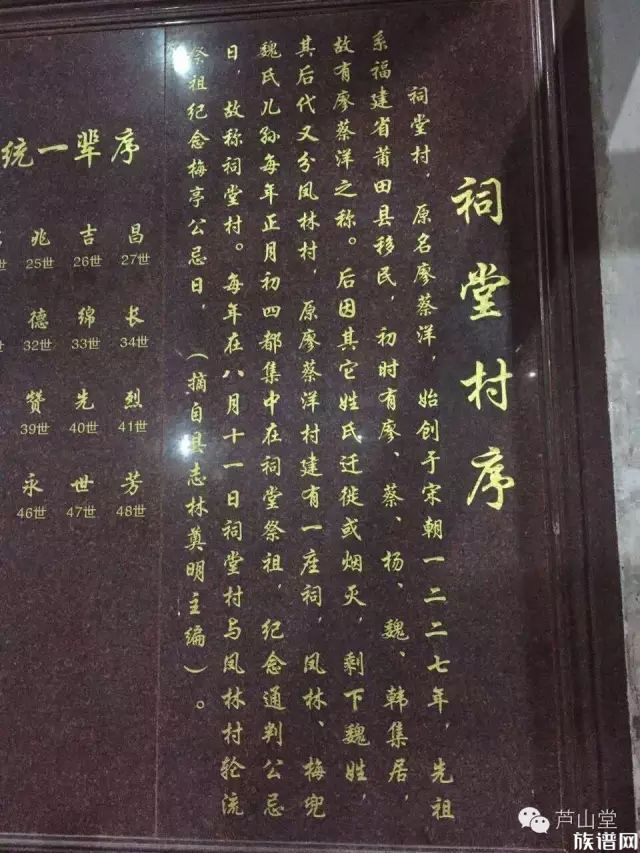 祠堂村序
祠堂村，原名廖蔡洋，始创于宋朝一二二七年，先祖
系福建省莆田县移民，初时有廖、蔡、杨、魏、韩集居，
故有廖蔡洋之称。后因其它姓氏迁徙或烟灭，剩下魏姓，
其后代又分凤林村，原廖蔡洋村建有一座祠，凤林、梅兜
魏氏儿孙每年正月初四都集中在祠堂祭祖，纪念通判公忌
日，故称祠堂村。每年在八月十一日祠堂村与凤林村轮流
祭祖纪念梅亭公忌日，（摘自县志林奠明主编）。
统一辈序
兆 吉 昌
25世 26世 27世
德 绵 长
32世 33世 34世
赞 先 烈
39世 40世 41世
永 世 芳
46世 47世 48世
芦山堂
族谱网